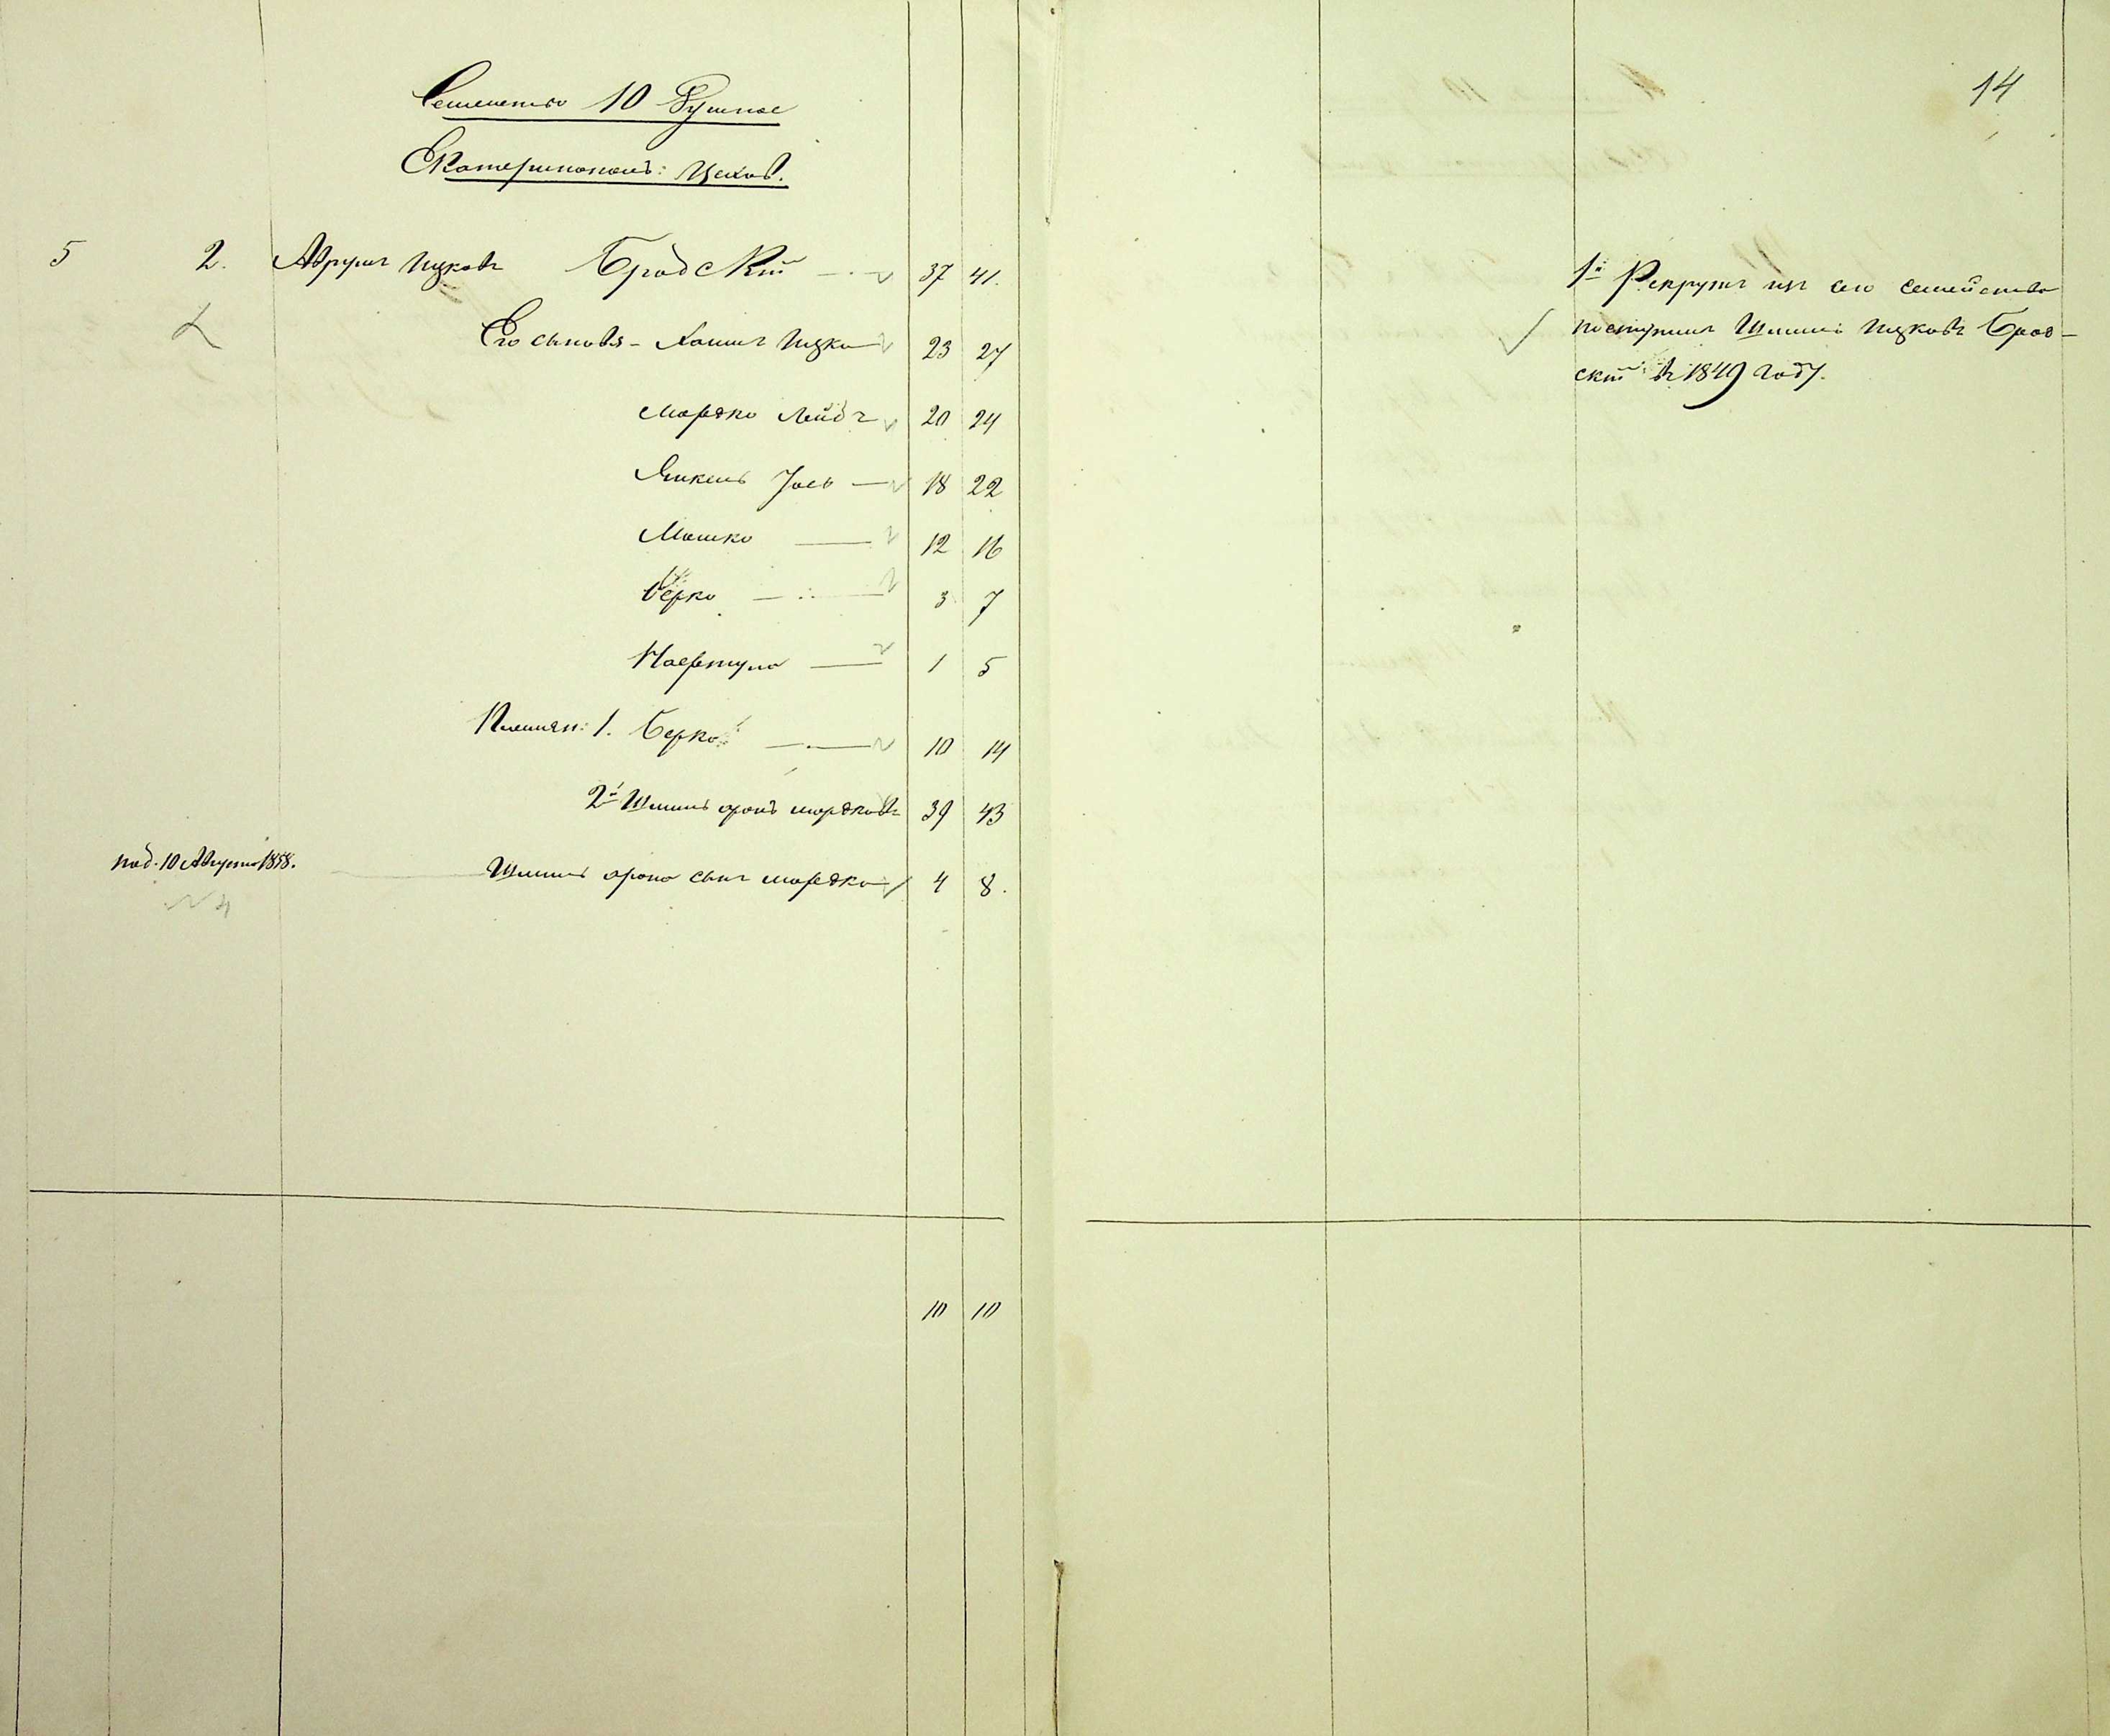 14
Семейство 10 Душное
Екатеринопольс: Цехов.
5 2. Аврумъ Ицковъ Бродскій 37 41.
Его сыновья - Хаимъ Ицко 23 27
Мордко Лейбъ 20 24
Янкель Іось 18 22
Мошко 12 16
Берко 3 7
1 5
Племян: 1. Берко 10 14
2й Шмиль Аронъ Мордковъ 39 43
под. 10 Августа 1858. Шмиль Арона сынъ Мордко 4 8.
№ 4
10 10
1й Рекрутъ изъ сего семейства
поступилъ Шмиль Ицковъ Брод-
скій въ 1849 году.